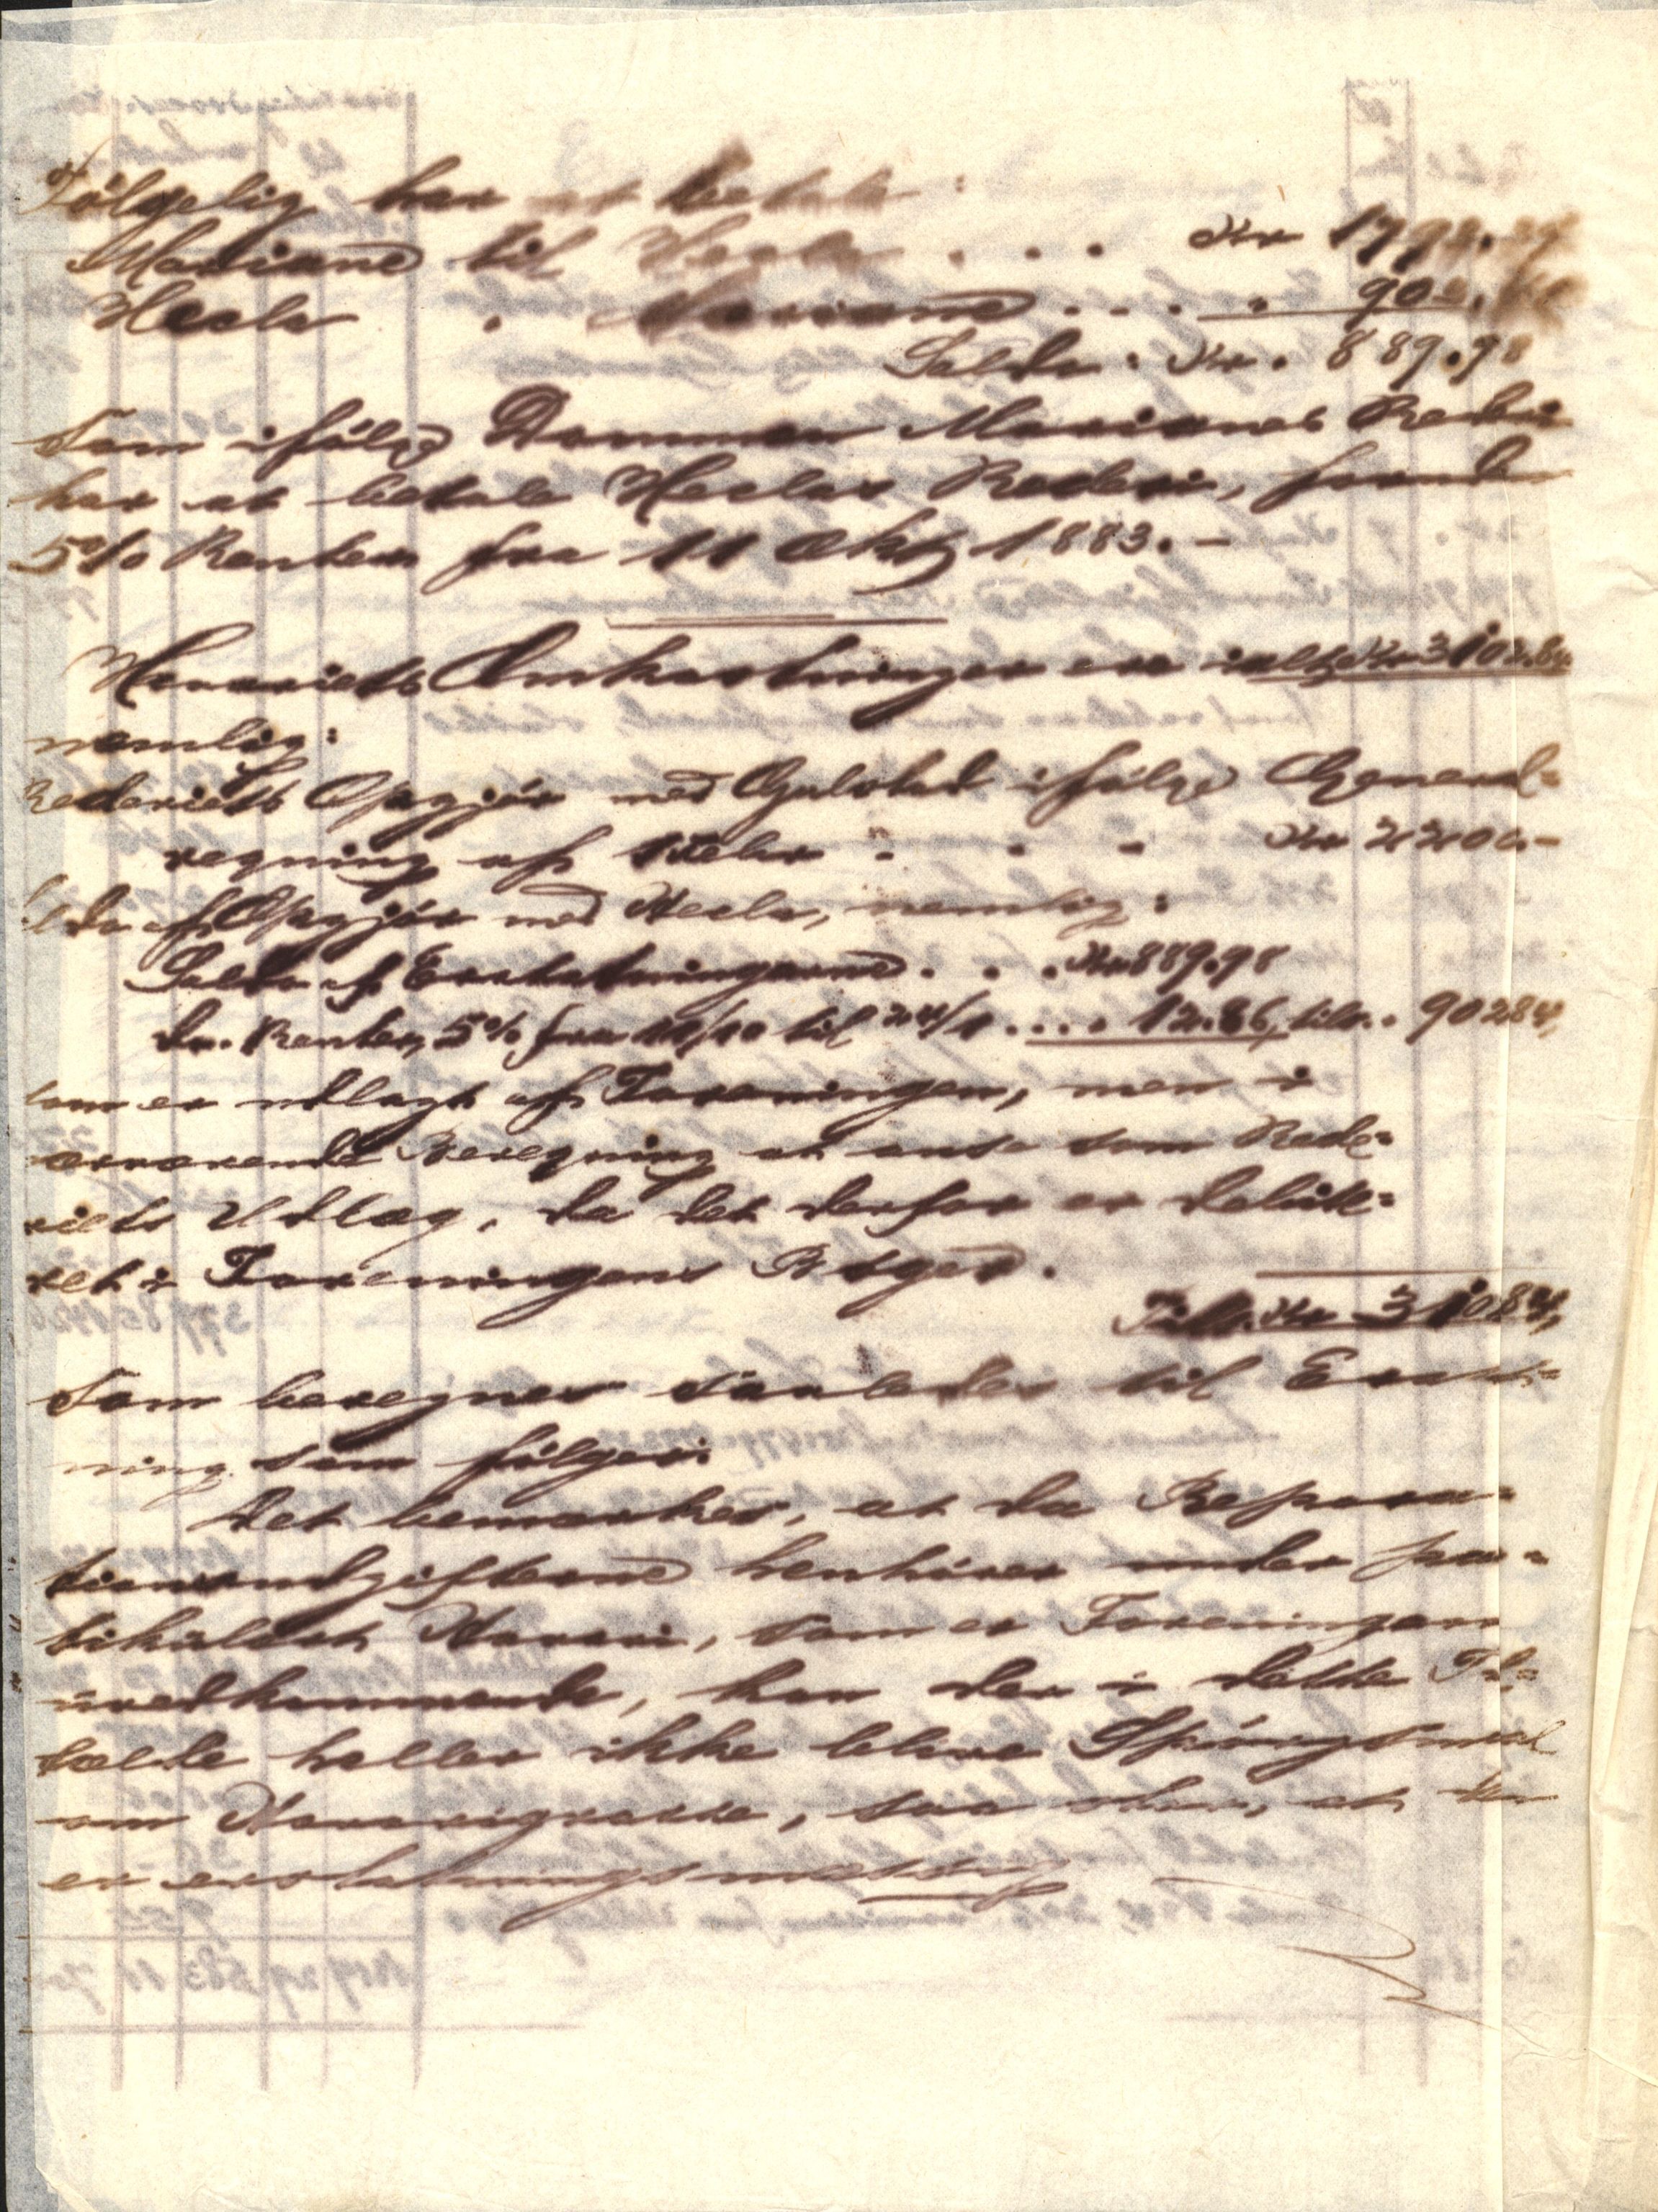 Følgelig har at betale :
Mariane til Hecla . . . Kr 1792.
Hecla " Mariane . . . . " 902.
Saldo : Kr. 889.98
som ifølge Dommen Marianes Rederi
har at betale Heclas Rederi, foruden
5% Renter fra 11 Okt 1883. –
Havariets Omkostninger ere ialt Kr 3102.84
nemlig:
Rederiets Opgjør med Gulstad ifølge General=
regning af - - - Kr 2200.–
Opgjør med Hecla, nemlig:
Saldo af Erstatningerne . . . Kr 889.98
do. Renter, 5% fra 11/10 til 24/1 . . . . 12.86, tils. . 902 84,
som er udlagt af Foreningen, men i
nærværende Beregning at anse som Rede=
riets Udlæg, da det derfor er debite=
ret i Foreningens Bøger.
Tils. Kr 3102 84,
som beregnes saaledes til
ning som følger:
Det bemærkes, at da Repara=
tionsudgifterne henhører under par=
tikulært Havari, som er Foreningen
uvedkommende, kan der i dette Til=
fælde heller ikke blive Spørgsmaal
om Havarigrosse, saa at der
er erstatningsmæssig